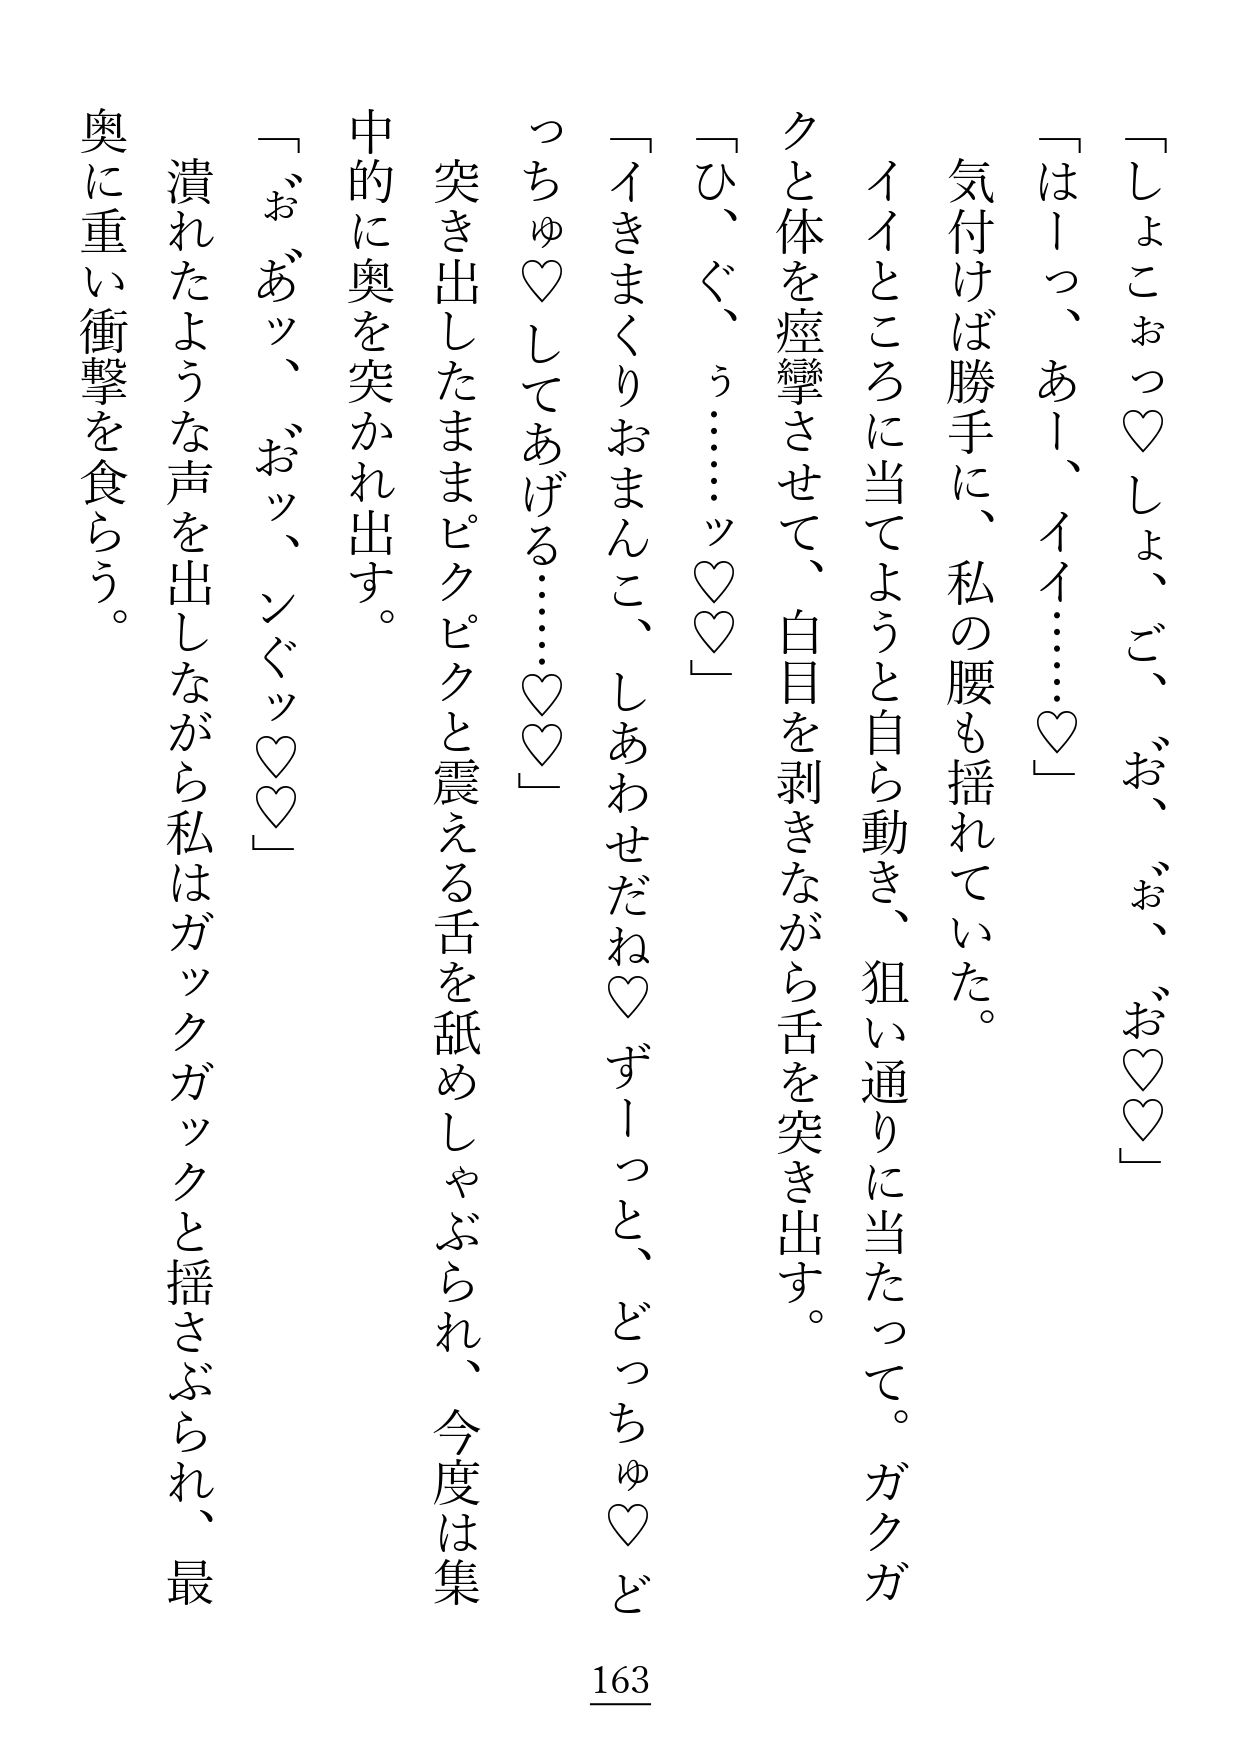 「しょこぉっ♡しょ、ご、お゛、ぉ゛、お゛♡♡」
「はーっ、あー、イイ……♡」
　気付けば勝手に、私の腰も揺れていた。
　イイところに当てようと自ら動き、狙い通りに当たって。ガクガ
クと体を痙攣させて、白目を剥きながら舌を突き出す。
「ひ、ぐ、ぅ……ッ♡♡」
「イきまくりおまんこ、しあわせだね♡ずーっと、どっちゅ♡ど
っちゅ♡してあげる……♡♡」
　突き出したままピクピクと震える舌を舐めしゃぶられ、今度は集
中的に奥を突かれ出す。
「ぉ゛あ゛ッ、お゛ッ、ンぐッ♡♡」
　潰れたような声を出しながら私はガックガックと揺さぶられ、最
奥に重い衝撃を食らう。
163